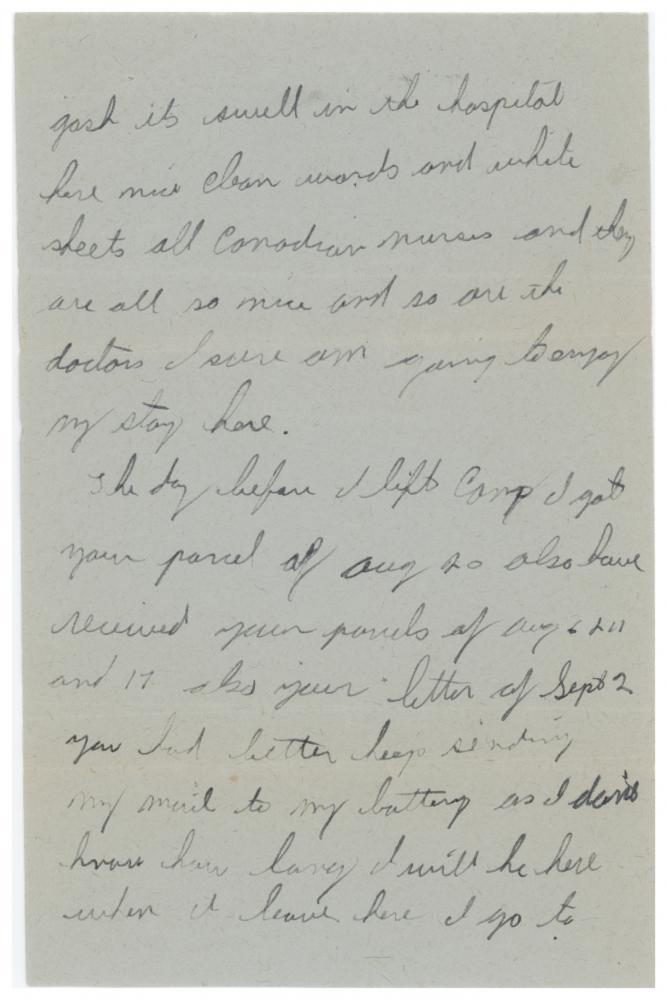 gosh its swell in the hospital
here nice clean wards and white
sheets all Canadian nurses and they
are all so nice and so are the
doctors I sure am going to enjoy
my stay here.
The day before I left Camp I got
your parcel of aug 20 also have
received your parcels of aug 6 & 11
and 17 also your letter of Sept 2
you had better keep sending
my mail to my battery as I don't
know how long I will be here
when I leave here I go to